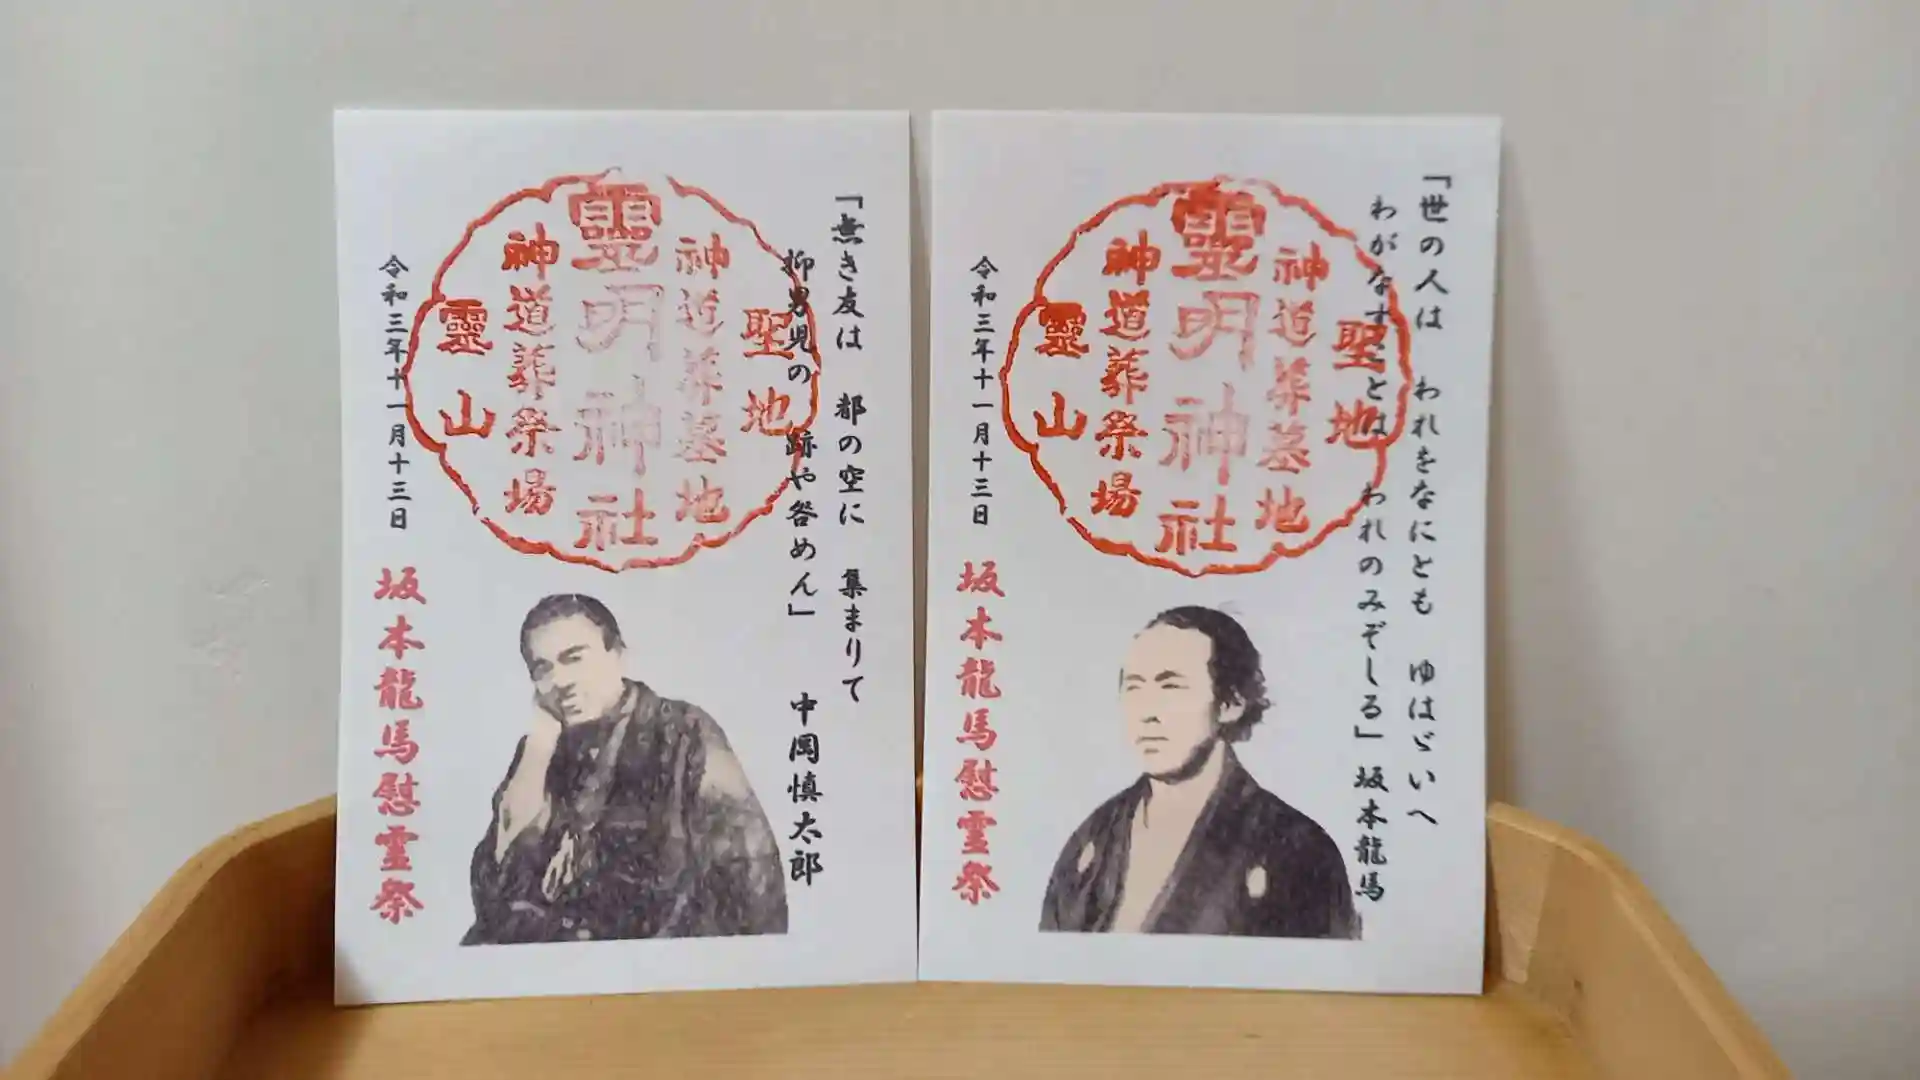 「無き友は 都の空に 集まりて
抑男児の 跡や咎めん」 中岡慎太郎
聖地
神道葬墓地
靈明神社
神道葬祭場
靈山
令和三年十一月十三日
坂本龍馬慰霊祭
「世の人は われをなにとも ゆはゞいへ
わがなすことは われのみぞしる」 坂本龍馬
聖地
神道葬墓地
靈明神社
神道葬祭場
靈山
令和三年十一月十三日
坂本龍馬慰霊祭